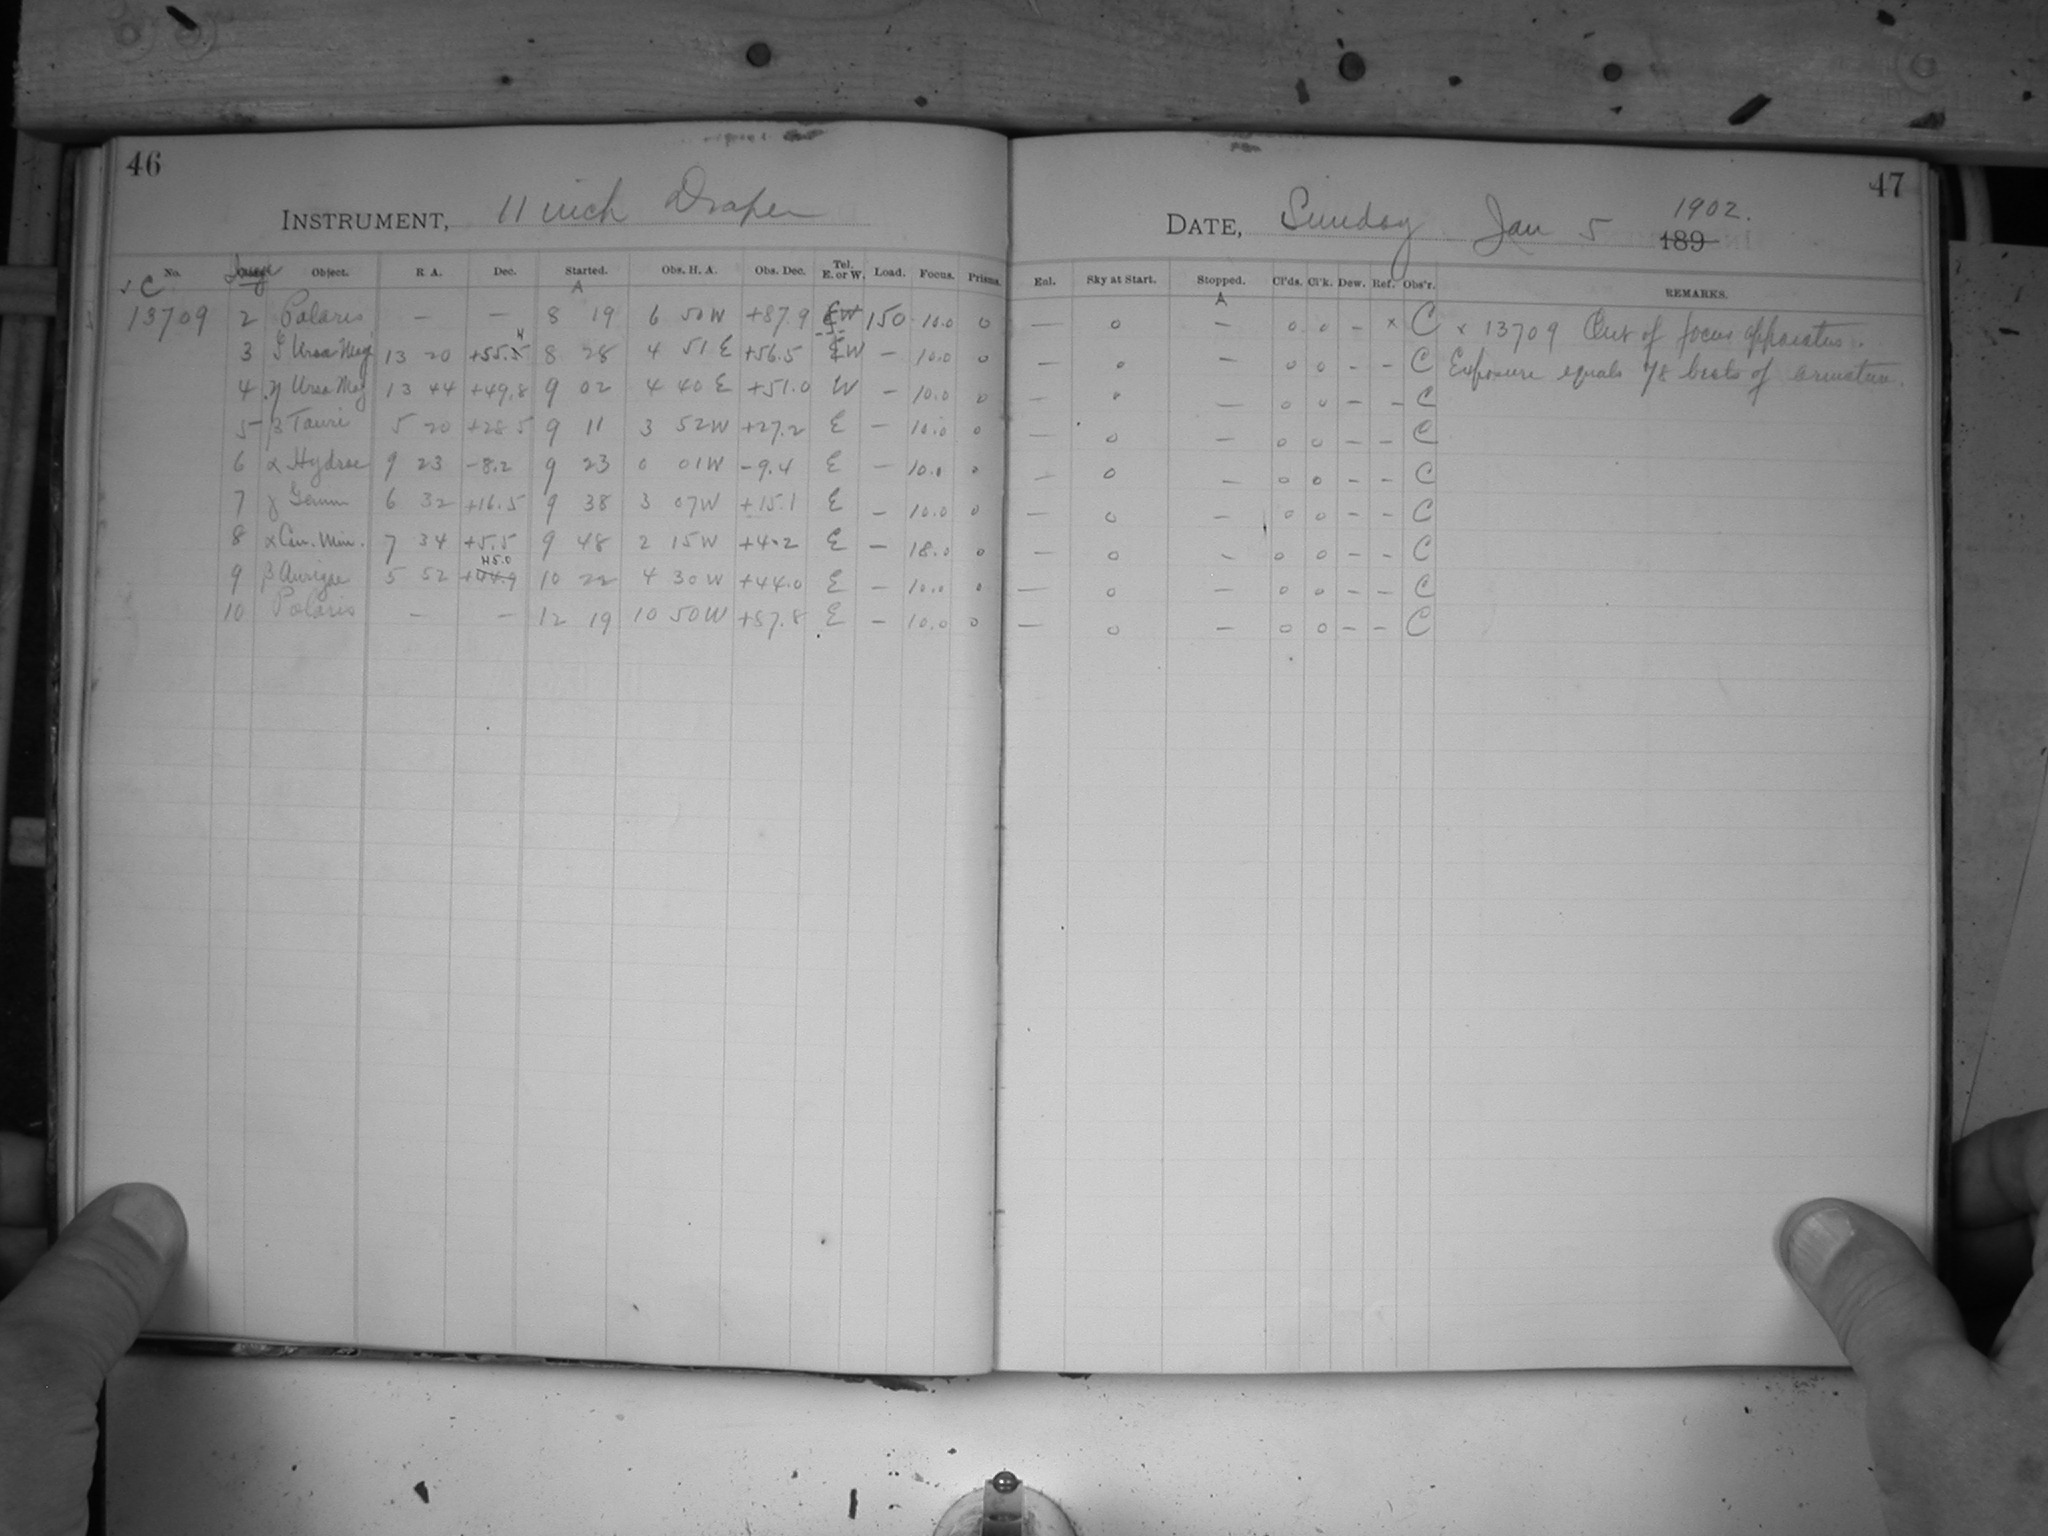 46
INSTRUMENT, 11 inch Draper
No. Object. R. A. Dec. Started. Obs. H. A. Obs. Dec. Tel. E. or W. Load. Focus. Prisms.
C A
13709 2 Polaris — — 8 19 6 50 W +87.9 W 150 10.0 0
3 ζ Ursa Maj 13 20 +55.4 8 28 4 51 E +56.5 W — 10.0 0
4 η Ursa Maj 13 44 +49.8 9 02 4 40 E +51.0 W — 10.0 0
5 β Tauri 5 20 +28.5 9 11 3 52 W +27.2 E — 10.0 0
6 α Hydrae 9 23 -8.2 9 23 0 01 W -9.4 E — 10.0 0
7 γ Gemm 6 32 +16.5 9 38 3 07 W +15.1 E — 10.0 0
8 α Can. Min. 7 34 +5.5 9 48 2 15 W +4.2 E — 18.0 0
45.0
9 β Aurigae 5 52 +44.9 10 22 4 30 W +44.0 E — 10.0 0
10 Polaris — — 12 19 10 50 W +87.8 E — 10.0 0
47
DATE, Sunday Jan 5 1902.
189
Enl. Sky at Start. Stopped. Cl'ds. Cl'k. Dew. Ref. Obs'r. REMARKS.
A
— 0 — 0 0 — x C x 13709 Out of focus apparatus.
— 0 — 0 0 — — C Exposure equals 78 beats of armature.
— 0 — 0 0 — — C
— 0 — 0 0 — — C
— 0 — 0 0 — — C
— 0 — 0 0 — — C
— 0 — 0 0 — — C
— 0 — 0 0 — — C
— 0 — 0 0 — — C